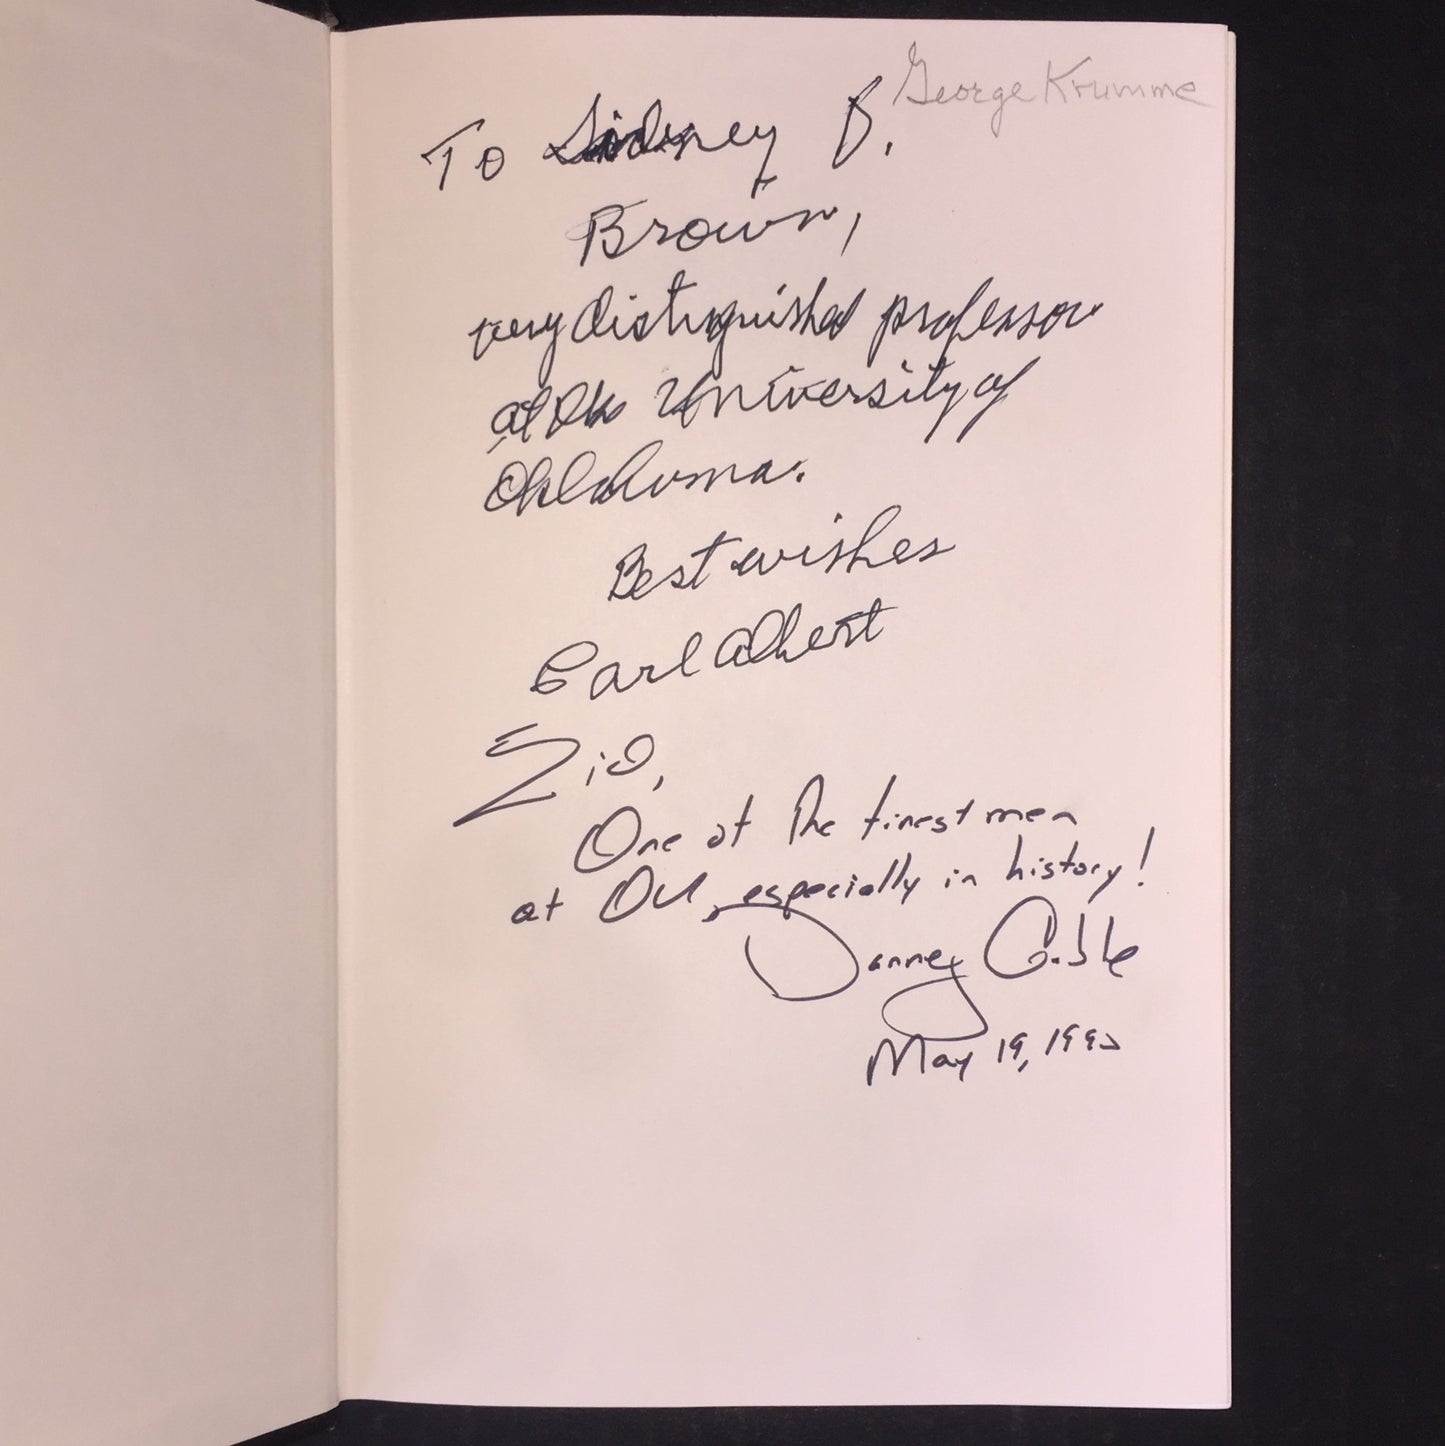 George Krumme
To Sidney B.
Brown,
very distinguished professor
at the University of
Oklahoma.
Best wishes
Carl Albert
Sid,
One of the finest men
at OU, especially in history!
Danney Goble
May 19, 1992